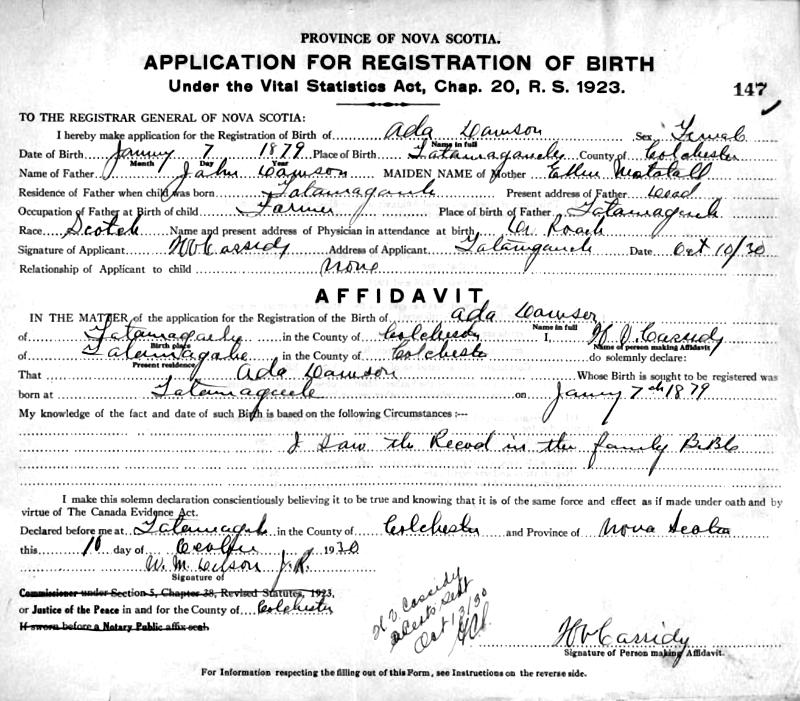 PROVINCE OF NOVA SCOTIA.
APPLICATION FOR REGISTRATION OF BIRTH
Under the Vital Statistics Act, Chap. 20, R. S. 1923.
147
TO THE REGISTRAR GENERAL OF NOVA SCOTIA:
I hereby make application for the Registration of Birth of Ada Dawson Sex Female
Name in full
Date of Birth Janury 7 1879 Place of Birth Tatamagouche County of Colchester
Month Day Year
Name of Father John Dawson MAIDEN NAME of Mother Ellen
Residence of Father when child was born Tatamagouche Present address of Father Dead
Occupation of Father at Birth of child Farmer Place of birth of Father Tatamagouche
Race Scotch Name and present address of Physician in attendance at birth Dr Roach
Signature of Applicant H V Cassidy Address of Applicant Tatamagouche Date Oct 10/30
Relationship of Applicant to child none
AFFIDAVIT
IN THE MATTER of the application for the Registration of the Birth of Ada Dawson
Name in full
of Tatamagouche in the County of Colchester I, H. V. Cassidy
Birth place Name of person making Affidavit
of Tatamagouche in the County of Colchester do solemnly declare:
Present residence
That Ada Dawson Whose Birth is sought to be registered was
born at Tatamagouche on Janury 7th 1879
My knowledge of the fact and date of such Birth is based on the following Circumstances :---
I saw the Record in the family Bible
I make this solemn declaration conscientiously believing it to be true and knowing that it is of the same force and effect as if made under oath and by
virtue of The Canada Evidence Act.
Declared before me at Tatamagouche in the County of Colchester and Province of Nova Scotia
this 10 day of October 1930
W. M. J. P.
Signature of
Commissioner under Section 5, Chapter 38, Revised Statutes, 1923,
or Justice of the Peace in and for the County of Colchester
If sworn before a Notary Public affix seal.
H V Cassidy
Cert sent
Oct 13/30
H V Cassidy
Signature of Person making Affidavit.
For Information respecting the filling out of this Form, see Instructions on the reverse side.